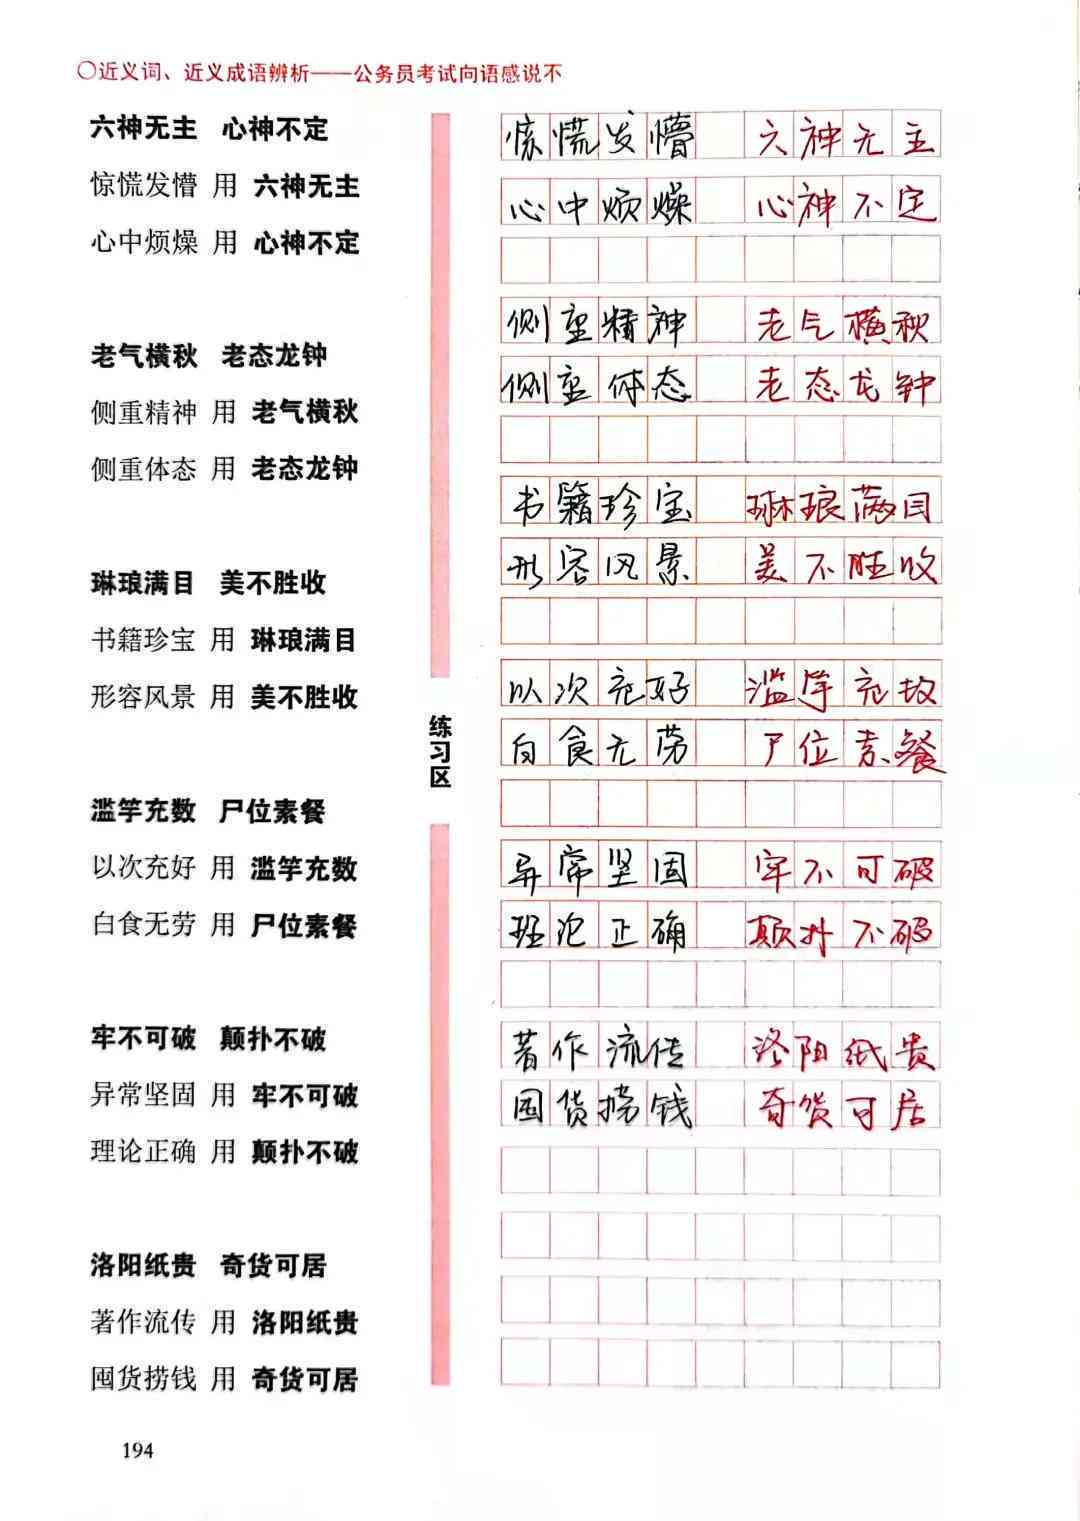 ○近义词、近义成语辨析——公务员考试向语感说不
六神无主 心神不定
惊慌发懵 用 六神无主
心中烦燥 用 心神不定
老气横秋 老态龙钟
侧重精神 用 老气横秋
侧重体态 用 老态龙钟
琳琅满目 美不胜收
书籍珍宝 用 琳琅满目
形容风景 用 美不胜收
滥竽充数 尸位素餐
以次充好 用 滥竽充数
白食无劳 用 尸位素餐
牢不可破 颠扑不破
异常坚固 用 牢不可破
理论正确 用 颠扑不破
洛阳纸贵 奇货可居
著作流传 用 洛阳纸贵
囤货捞钱 用 奇货可居
194
练习区
惊慌发懵 六神无主
心中烦燥 心神不定
侧重精神 老气横秋
侧重体态 老态龙钟
书籍珍宝 琳琅满目
形容风景 美不胜收
以次充好 滥竽充数
白食无劳 尸位素餐
异常坚固 牢不可破
理论正确 颠扑不破
著作流传 洛阳纸贵
囤货捞钱 奇货可居